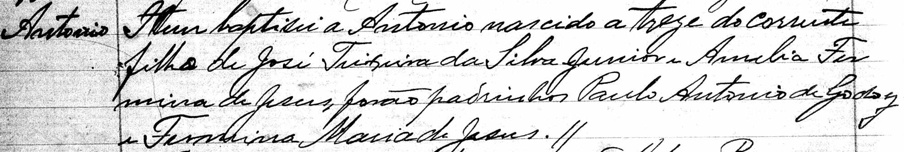 Antonio Item baptisei a Antonio nascido a treze do corrente
filho de José Teixeira da Silva Junior e Amelia Fir
mina de Jesus, forão padrinhos Paulo Antonio de Godoy
e Firmina Maria de Jesus. //